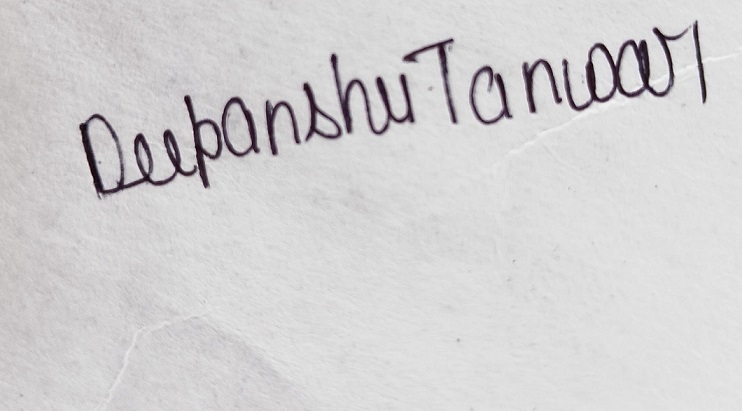 Deepanshu Tanwar